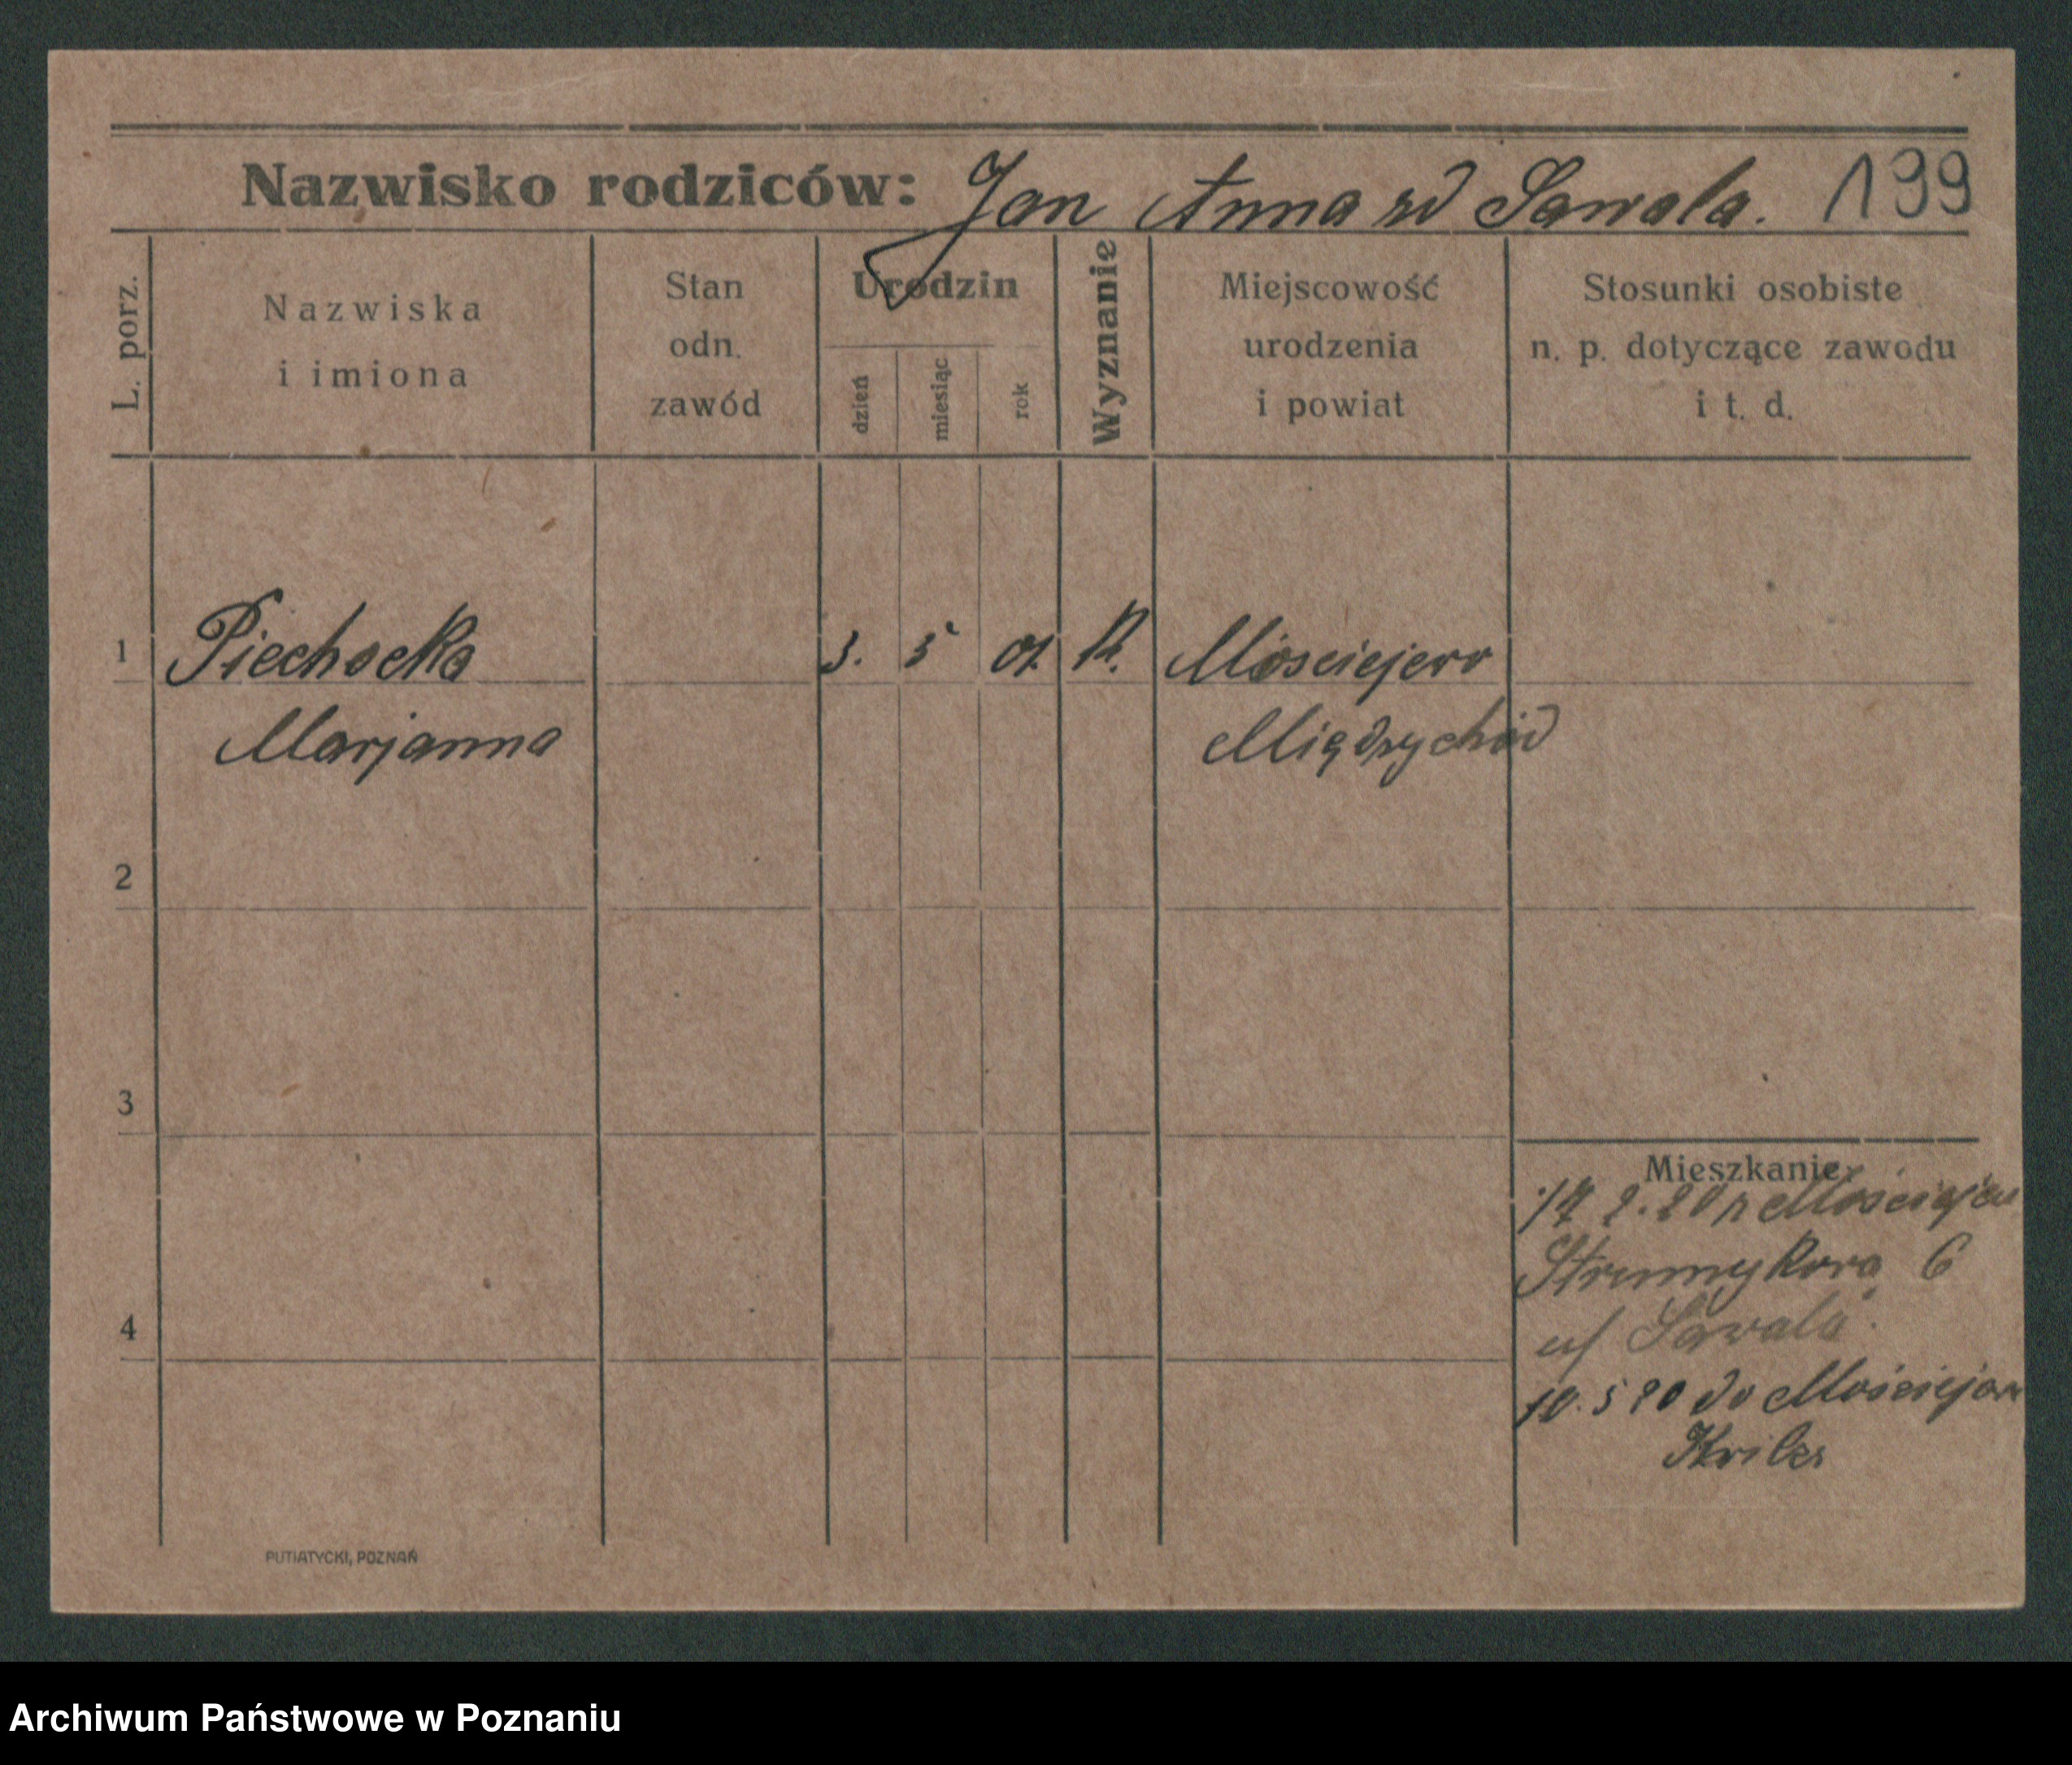 Nazwisko rodziców: Jan Anna zd Sawala. 199
L. porz.
Nazwiska
i imiona
Stan
odn.
zawód
Urodzin
dzień
miesiąc
rok
Wyznanie
Miejscowość
urodzenia
i powiat
Stosunki osobiste
n. p. dotyczące zawodu
i t. d.
1 Piechocka 3. 5 01. K. Mościejewo
Marjanna Międzychód
2
3
Mieszkanie
z Mościejew
Strumykowa 6
u/ Sawala.
10. 5 20 do Mościejew
4
PUTIATYCKI, POZNAŃ
Archiwum Państwowe w Poznaniu